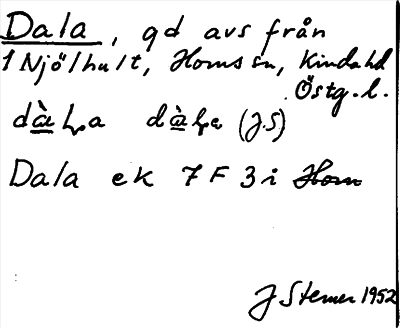 Dala, gd avs från
1 Njölhult, Horns sn, Kinda hd
Östg. l.
dàla dàla (J.S)
Dala ek 7 F 3 i Horn
J Sterner 1952